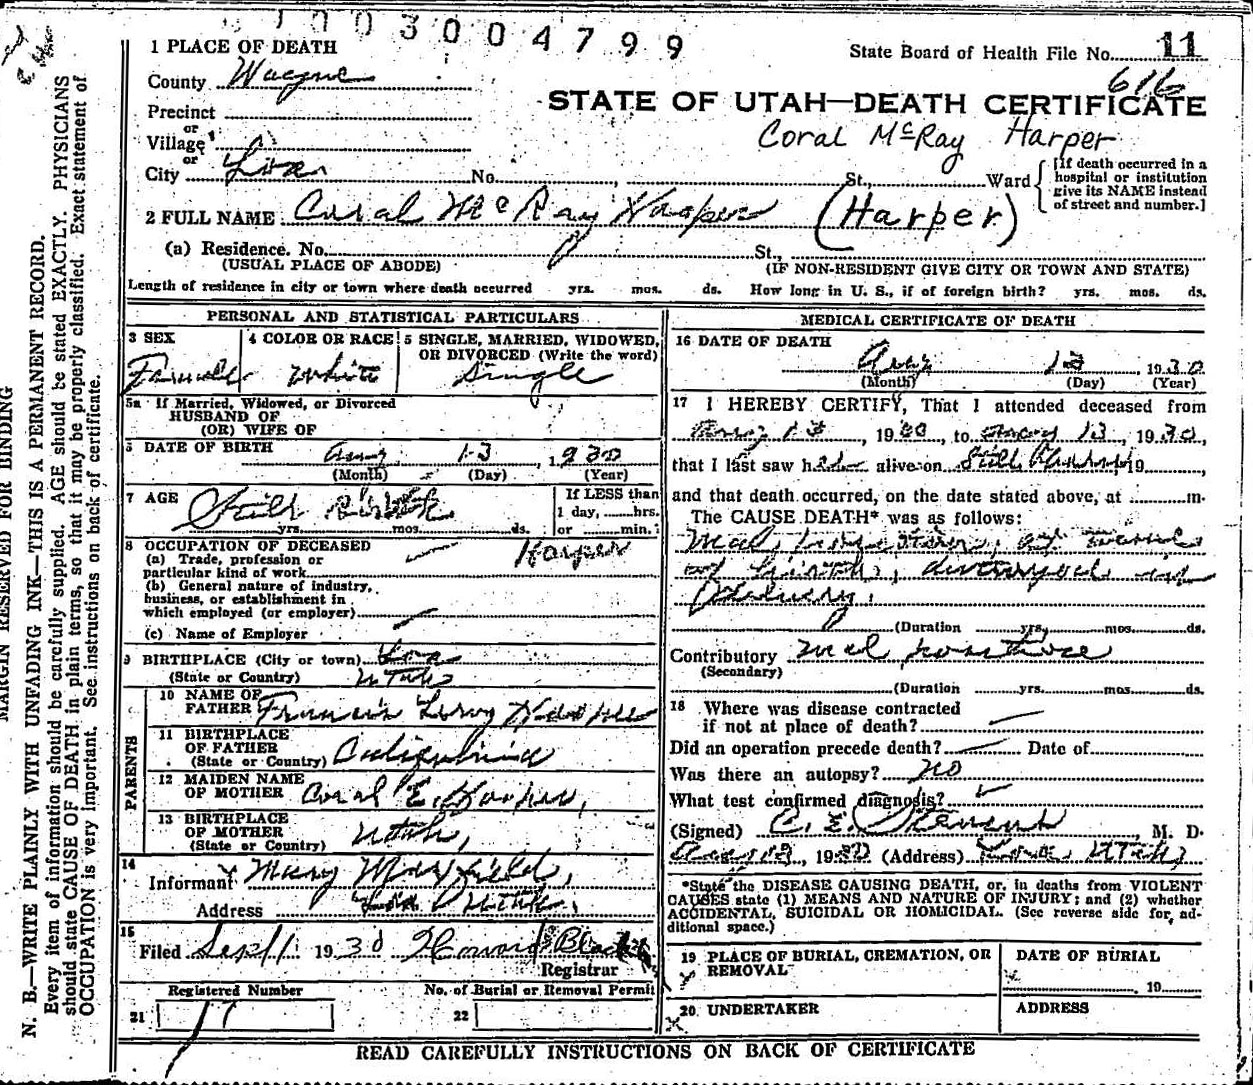 1003004799
State Board of Health File No. 11
616
1 PLACE OF DEATH
County Wayne
STATE OF UTAH—DEATH CERTIFICATE
Precinct
or
Village
Coral McRay Harper
or
City Loa No. St., Ward
[If death occurred in a
hospital or institution
give its NAME instead
of street and number.]
2 FULL NAME Coral McRay Harper (Harper)
(a) Residence. No. St.,
(USUAL PLACE OF ABODE) (IF NON-RESIDENT GIVE CITY OR TOWN AND STATE)
Length of residence in city or town where death occurred yrs. mos. ds. How long in U. S., if of foreign birth? yrs. mos. ds.
PERSONAL AND STATISTICAL PARTICULARS
3 SEX
Female
4 COLOR OR RACE
White
5 SINGLE, MARRIED, WIDOWED,
OR DIVORCED (Write the word)
Single
5a If Married, Widowed, or Divorced
HUSBAND OF
(OR) WIFE OF
DATE OF BIRTH Aug 13 1930
(Month) (Day) (Year)
7 AGE Still Birth
yrs. mos. ds.
If LESS than
1 day, hrs.
or min.?
8 OCCUPATION OF DECEASED
Harper
(a) Trade, profession or
particular kind of work
(b) General nature of industry,
business, or establishment in
which employed (or employer)
(c) Name of Employer
9 BIRTHPLACE (City or town) Loa
(State or Country) Utah
PARENTS
10 NAME OF
FATHER Francis Leroy Harper
11 BIRTHPLACE
OF FATHER
(State or Country) California
12 MAIDEN NAME
OF MOTHER Coral E.
13 BIRTHPLACE
OF MOTHER
(State or Country) Utah,
14
Informant Mary Maxfield,
Address Loa Utah.
15
Filed Sept 1 1930 Howard Black
Registrar
Registered Number No. of Burial or Removal Permit
21 17 22
MEDICAL CERTIFICATE OF DEATH
16 DATE OF DEATH
Aug 13 1930
(Month) (Day) (Year)
17 I HEREBY CERTIFY, That I attended deceased from
Aug 13, 1930, to Aug 13, 1930,
that I last saw her alive on Still 19
and that death occurred, on the date stated above, at m.
The CAUSE DEATH* was as follows:
Mal position, at
of birth, destroyed in
Delivery.
(Duration yrs. mos. ds.
Contributory mal positive
(Secondary)
(Duration yrs. mos. ds.
18 Where was disease contracted
if not at place of death?
Did an operation precede death? Date of
Was there an autopsy? no
What test confirmed diagnosis?
(Signed) C. E. , M. D.
Aug 13, 1930 (Address) Loa, Utah
*State the DISEASE CAUSING DEATH, or, in deaths from VIOLENT
CAUSES state (1) MEANS AND NATURE OF INJURY; and (2) whether
ACCIDENTAL, SUICIDAL OR HOMICIDAL. (See reverse side for ad-
ditional space.)
19 PLACE OF BURIAL, CREMATION, OR
REMOVAL
DATE OF BURIAL
, 19
20 UNDERTAKER
ADDRESS
READ CAREFULLY INSTRUCTIONS ON BACK OF CERTIFICATE
MARGIN RESERVED FOR BINDING
N. B.—WRITE PLAINLY WITH UNFADING INK—THIS IS A PERMANENT RECORD.
Every item of information should be carefully supplied. AGE should be stated EXACTLY. PHYSICIANS
should state CAUSE OF DEATH in plain terms, so that it may be properly classified. Exact statement of
OCCUPATION is very important. See instructions on back of certificate.